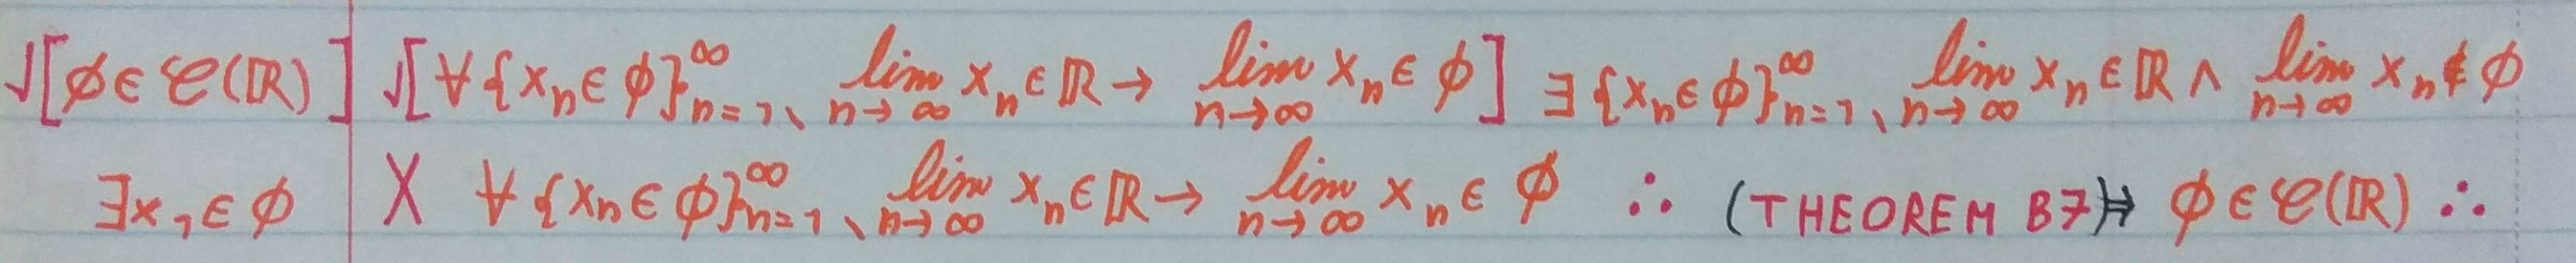 √[ϕ∈𝒞(ℝ)] √[∀{xₙ∈ϕ}ₙ₌₁^∞, lim_{n→∞} xₙ∈ℝ → lim_{n→∞} xₙ∈ϕ] ∃{xₙ∈ϕ}ₙ₌₁^∞, lim_{n→∞} xₙ∈ℝ ∧ lim_{n→∞} xₙ∉ϕ
∃x₁∈ϕ X ∀{xₙ∈ϕ}ₙ₌₁^∞, lim_{n→∞} xₙ∈ℝ → lim_{n→∞} xₙ∈ϕ ∴ (THEOREM B7)↦ ϕ∈𝒞(ℝ) ∴